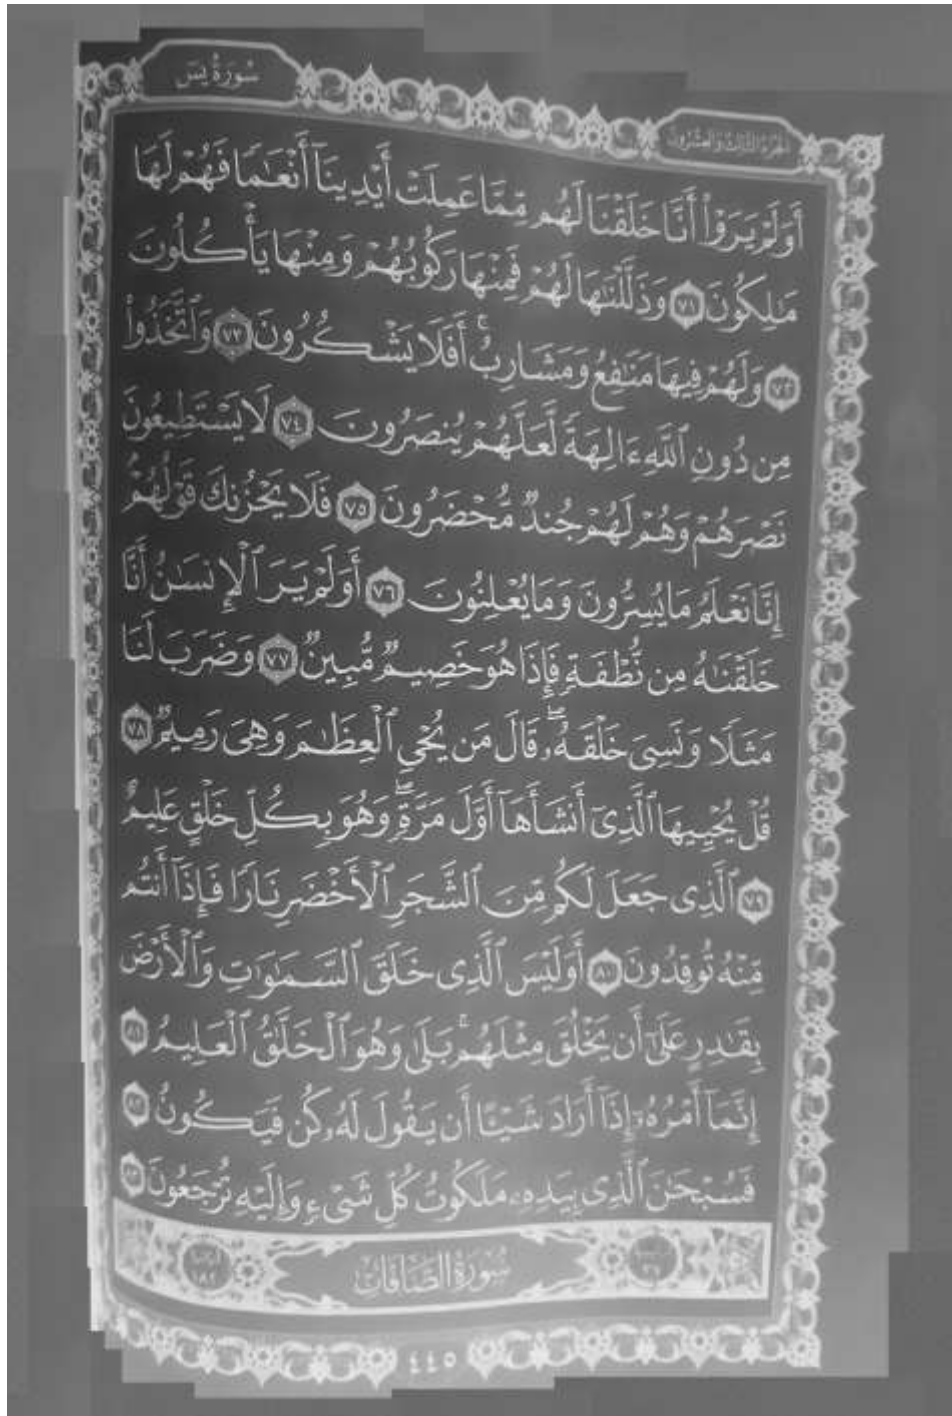 سُورَةُ يسٓ
الجزء الثالث والعشرون
أَوَلَمْ يَرَوْا۟ أَنَّا خَلَقْنَا لَهُم مِّمَّا عَمِلَتْ أَيْدِينَآ أَنْعَٰمًا فَهُمْ لَهَا
مَٰلِكُونَ ٧١ وَذَلَّلْنَٰهَا لَهُمْ فَمِنْهَا رَكُوبُهُمْ وَمِنْهَا يَأْكُلُونَ
٧٢ وَلَهُمْ فِيهَا مَنَٰفِعُ وَمَشَارِبُ ۚ أَفَلَا يَشْكُرُونَ ٧٣ وَٱتَّخَذُوا۟
مِن دُونِ ٱللَّهِ ءَالِهَةً لَّعَلَّهُمْ يُنصَرُونَ ٧٤ لَا يَسْتَطِيعُونَ
نَصْرَهُمْ وَهُمْ لَهُمْ جُندٌ مُّحْضَرُونَ ٧٥ فَلَا يَحْزُنكَ قَوْلُهُمْ
إِنَّا نَعْلَمُ مَا يُسِرُّونَ وَمَا يُعْلِنُونَ ٧٦ أَوَلَمْ يَرَ ٱلْإِنسَٰنُ أَنَّا
خَلَقْنَٰهُ مِن نُّطْفَةٍ فَإِذَا هُوَ خَصِيمٌ مُّبِينٌ ٧٧ وَضَرَبَ لَنَا
مَثَلًا وَنَسِىَ خَلْقَهُۥ ۖ قَالَ مَن يُحْىِ ٱلْعِظَٰمَ وَهِىَ رَمِيمٌ ٧٨
قُلْ يُحْيِيهَا ٱلَّذِىٓ أَنشَأَهَآ أَوَّلَ مَرَّةٍ ۖ وَهُوَ بِكُلِّ خَلْقٍ عَلِيمٌ
٧٩ ٱلَّذِى جَعَلَ لَكُم مِّنَ ٱلشَّجَرِ ٱلْأَخْضَرِ نَارًا فَإِذَآ أَنتُم
مِّنْهُ تُوقِدُونَ ٨٠ أَوَلَيْسَ ٱلَّذِى خَلَقَ ٱلسَّمَٰوَٰتِ وَٱلْأَرْضَ
بِقَٰدِرٍ عَلَىٰٓ أَن يَخْلُقَ مِثْلَهُم ۚ بَلَىٰ وَهُوَ ٱلْخَلَّٰقُ ٱلْعَلِيمُ ٨١
إِنَّمَآ أَمْرُهُۥٓ إِذَآ أَرَادَ شَيْـًٔا أَن يَقُولَ لَهُۥ كُن فَيَكُونُ ٨٢
فَسُبْحَٰنَ ٱلَّذِى بِيَدِهِۦ مَلَكُوتُ كُلِّ شَىْءٍ وَإِلَيْهِ تُرْجَعُونَ ٨٣
سُورَةُ الصَّافَّاتِ
١٨٢
٤٤٥